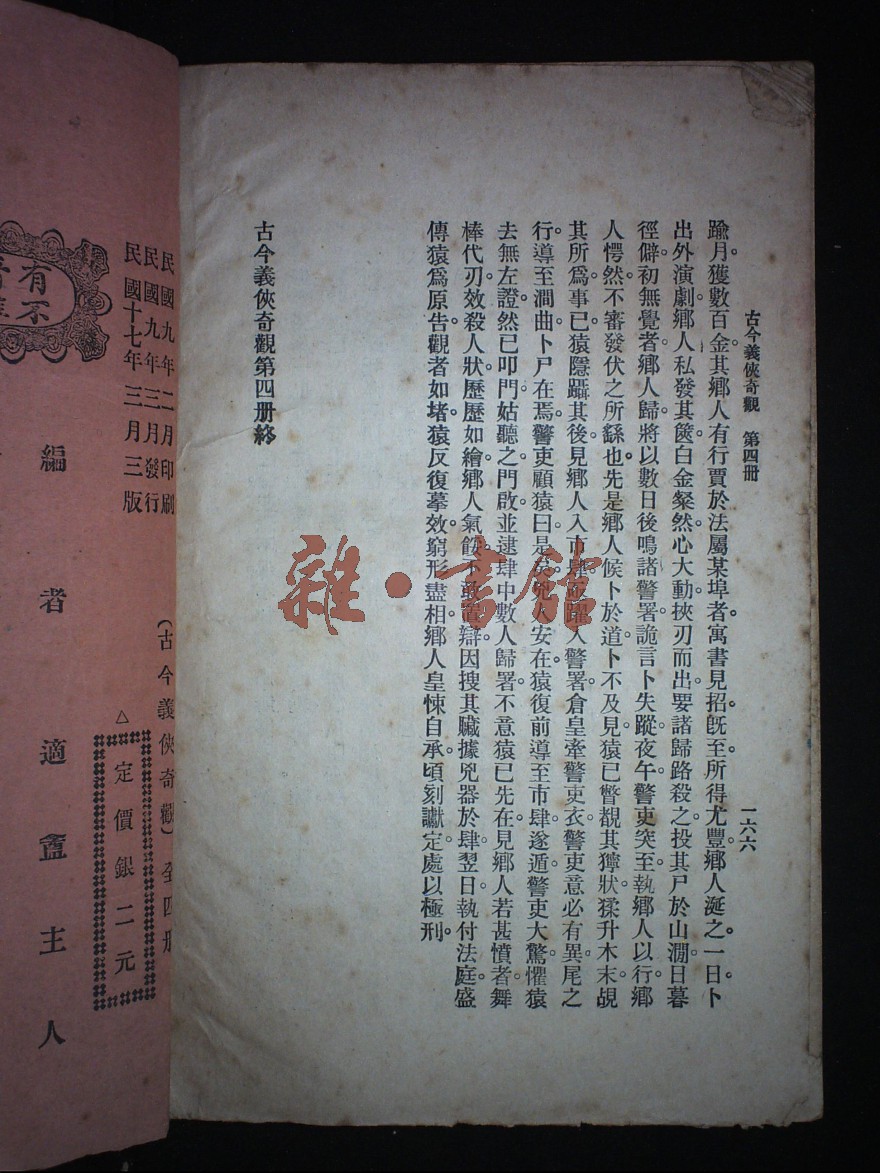 古今義俠奇觀　第四册
一六六
踰月獲數百金其鄉人有行賈於法屬某埠者寓書見招旣至所得尤豐鄉人涎之一日卜
出外演劇鄉人私發其篋白金粲然心大動挾刃而出要諸歸路殺之投其尸於山澗日暮
徑僻初無覺者鄉人歸將以數日後鳴諸警署詭言卜失蹤夜午警吏突至執鄉人以行鄉
人愕然不審發伏之所繇也先是鄉人候卜於道卜不及見猿已瞥覩其獰狀猱升木末覘
其所爲事已猿隱躡其後見鄉人入市肆返躍入警署倉皇牽警吏衣警吏意必有異尾之
行導至澗曲卜尸在焉警吏顧猿曰是矣兇人安在猿復前導至市肆遂遁警吏大驚懼猿
去無左證然已叩門姑聽之門啟並逮肆中數人歸署不意猿已先在見鄉人若甚憤者舞
棒代刃效殺人狀歷歷如繪鄉人氣餒不敢置辯因搜其贓據兇器於肆翌日執付法庭盛
傳猿爲原告觀者如堵猿反復摹效窮形盡相鄉人皇悚自承頃刻讞定處以極刑
古今義俠奇觀第四册終
雜・書館
民國九年二月印刷
民國九年三月發行
民國十七年三月三版
(古今義俠奇觀)全四册
定價銀二元
編者　適盦主人
有不